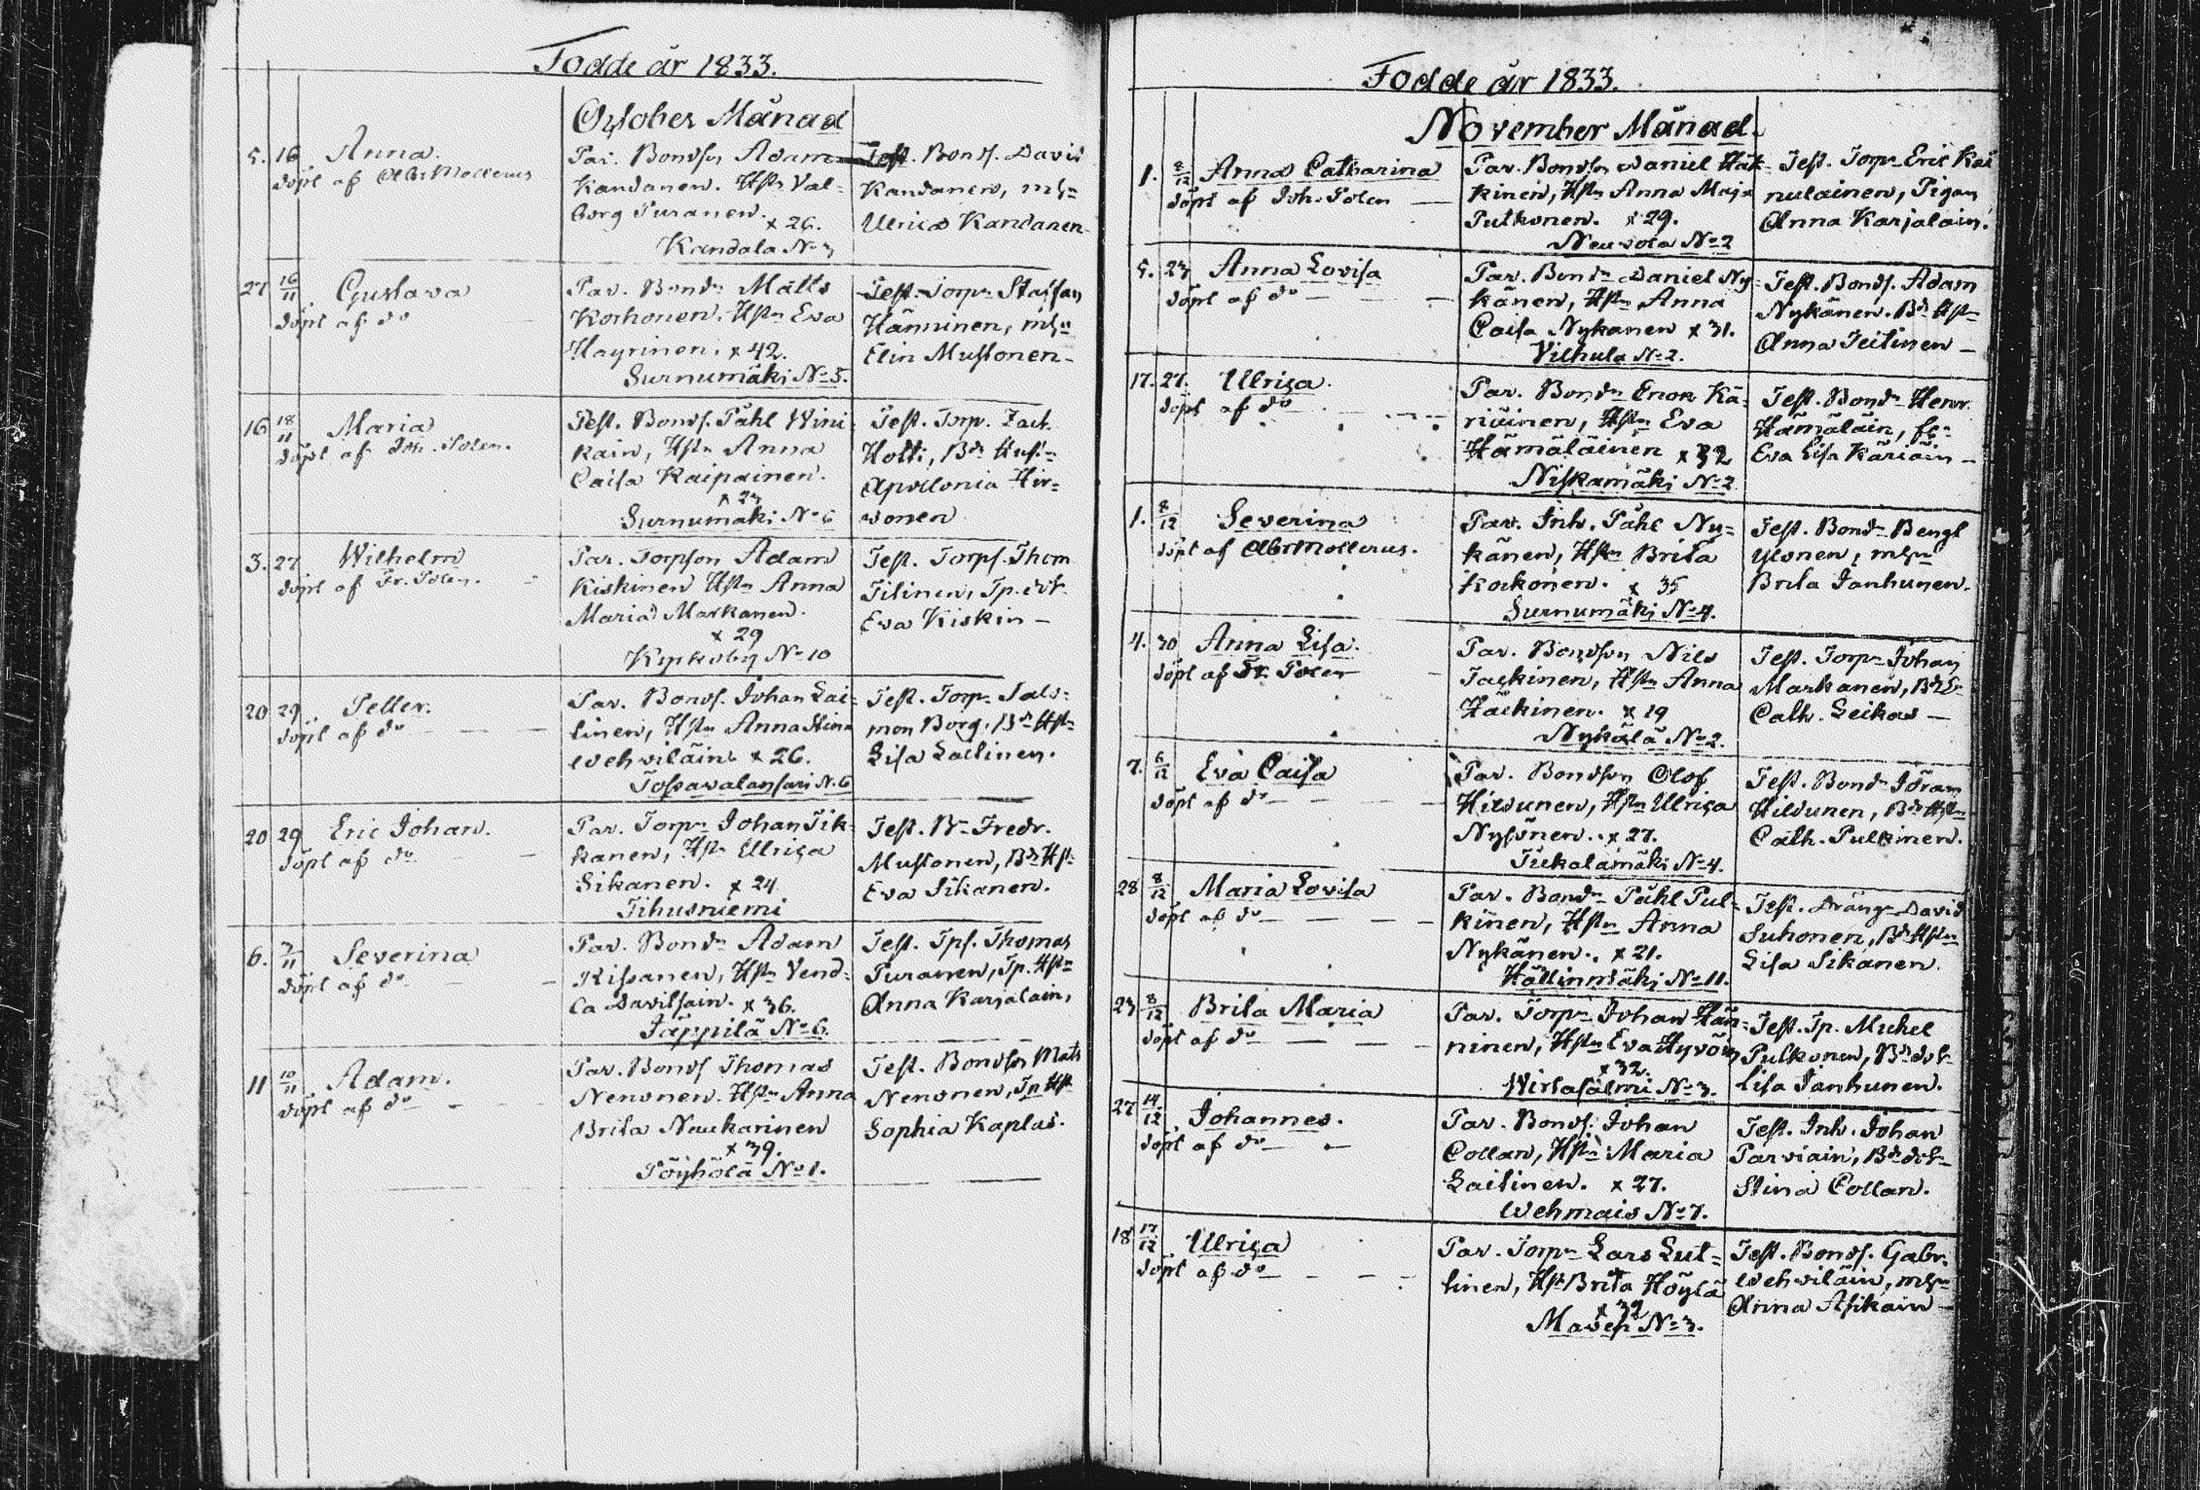 Födde år 1833.
October Månad
5. 16 Anna.
döpt af Abr Mollerus
Par. Bondson Adam
Kandanen. Hstr Val=
borg Puranen.
x 26.
Kandala No 3
Test. Bonds. David
Kandanen, mhu
Ulrica Kandanen
27 16/11 Gustava
döpt af do
Par. Bondn Matts
Korhonen. Hstn Eva
Häyrinen. x 42.
Surnumäki No 5.
Test. Torpn Staffan
Hänninen, mhu
Elin Mustonen
16 18/11 Maria
döpt af Joh. Polen.
Test. Bonds. Påhl Wini
kain, Hstn Anna
Caisa Kaipainen.
x 23
Surnumäki No 6
Test. Torp. Zach.
Hotti, Bdn Hust
Apollonia Hir=
vonen
3. 27 Wilhelm
döpt af Fr. Polen.
Par. Torpson Adam
Kiskinen Hstn Anna
Maria Markanen.
x 29
No 10
Test. Torps. Thom
Tilinen, Tp. dotr.
Eva Kiskin
20 29 Petter.
döpt af do
Par. Bonds. Johan Lai=
tinen, Hstn Anna Stina
Wehviläin. x 26.
Tossavalansari N. 6
Test. Torpn Salo=
mon Borg. Bdn Hstn
Lisa Laitinen.
20 29 Eric Johan.
döpt af do
Par. Torpn Johan Tik=
kanen, Hstn Ulrica
Sikanen. x 24
Tihusniemi
Test. Bn Fredr.
Mustonen, Bdn Hstn
Eva Sikanen.
6. 7/11 Severina
döpt af do
Par. Bondn Adam
Kissanen, Hstn Vend=
la Davilsain. x 36.
Jäppilä No 6.
Test. Tps. Thomas
Puranen, Tp. Hstn
Anna Karjalain,
11 10/11 Adam.
döpt af do
Par. Bonds Thomas
Nenonen. Hstn Anna
Brita Neukarinen
x 39.
Pöyhölä No 1.
Test. Bondson Mats
Nenonen, Tp Hstr
Sophia Kaplas.
Födde år 1833.
November Månad.
1. 8/12 Anna Catharina
döpt af Joh. Polen
Par. Bondson Daniel Häk=
kinen, Hstn Anna Maja
Putkonen. x 29.
Neuvola No 2
Test. Torpn Eric Kai
nulainen, Pigan
Anna Karjalain.
5. 23 Anna Lovisa
döpt af do
Par. Bondn Daniel Ny=
känen, Hstn Anna
Caisa Nykänen x 31.
Vilhula No 2.
Test. Bonds. Adam
Nykänen. Bdn Hstn
Anna Teitinen
17. 27. Ulrica.
döpt af do
Par. Bondn Enok Kä=
riäinen, Hstn Eva
Hämäläinen x 32
Niskamäki No 2
Test. Bondn Henr.
Hämäläin,
Eva Lisa Käriäin
1. 8/12 Severina
döpt af Abr Mollerus.
Par. Inh. Påhl Ny=
känen, Hstn Brita
Korkonen. x 35
Surnumäki No 4.
Test. Bondn Bengt
Ylönen, mhu
Brita Janhunen.
4. 30 Anna Lisa.
döpt af Fr. Polen
Par. Bondson Nils
Taskinen, Hstn Anna
Häkinen. x 19
Nykälä No 2.
Test. Torpn Johan
Markanen, Bdn
Cath. Leikas
7. 6/12 Eva Caisa
döpt af do
Par. Bondson Olof
Hildunen, Hstn Ulrica
Nyssönen. x 27.
Tiekalamäki No 4.
Test. Bondn Jöran
Hildunen, Bdn Hstn
Cath. Pulkinen.
28 8/12 Maria Lovisa
döpt af do
Par. Bondn Påhl Pul=
kinen, Hstn Anna
Nykänen. x 21.
Hällinmäki No 11.
Test. Dräng David
Suhonen, Bdn Hstn
Lisa Sikanen.
23 8/12 Brita Maria
döpt af do
Par. Torpn Johan Hän=
ninen, Hstn Eva Hyvöin
x 32.
Wirtasalmi No 3.
Test. Tp. Michel
Pulkonen, Bdn dotr
Lisa Janhunen.
27 14/12 Johannes.
döpt af do
Par. Bonds. Johan
Collan, Hstn Maria
Laitinen. x 27.
Wehmais No 7.
Test. Inh. Johan
Parviain, Bdn dotr
Stina Collan.
18 17/12 Ulrica
döpt af do
Par. Torpn Lars Lut=
tinen, Hstr Brita Höylä
x 32
No 3.
Test. Bonds. Gabr.
Wehviläin, mhu
Anna Asikain